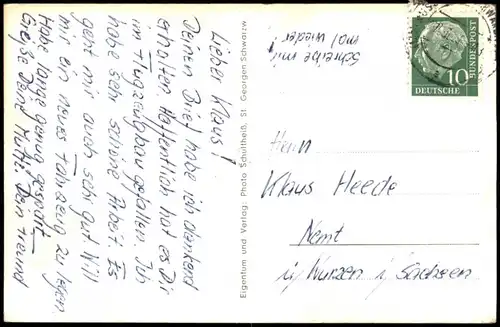 Lieber Klaus!
Deinen Brief habe ich dankend
erhalten. Hoffentlich hat es Dir
im Flugzeugbau gefallen. Ich
habe sehr schöne Arbeit. Es
geht mir auch sehr gut. Will
mir ein neues Fahrzeug zu legen.
Habe lange genug gespart.
Grüße Deine Mutti. Dein Freund
Schreibe mir
mal wieder!
Eigentum und Verlag: Photo Schultheiß, St. Georgen Schwarzw
10
BUNDESPOST
DEUTSCHE
Herrn
Klaus Heede
Nemt
i/ Wurzen i/ Sachsen